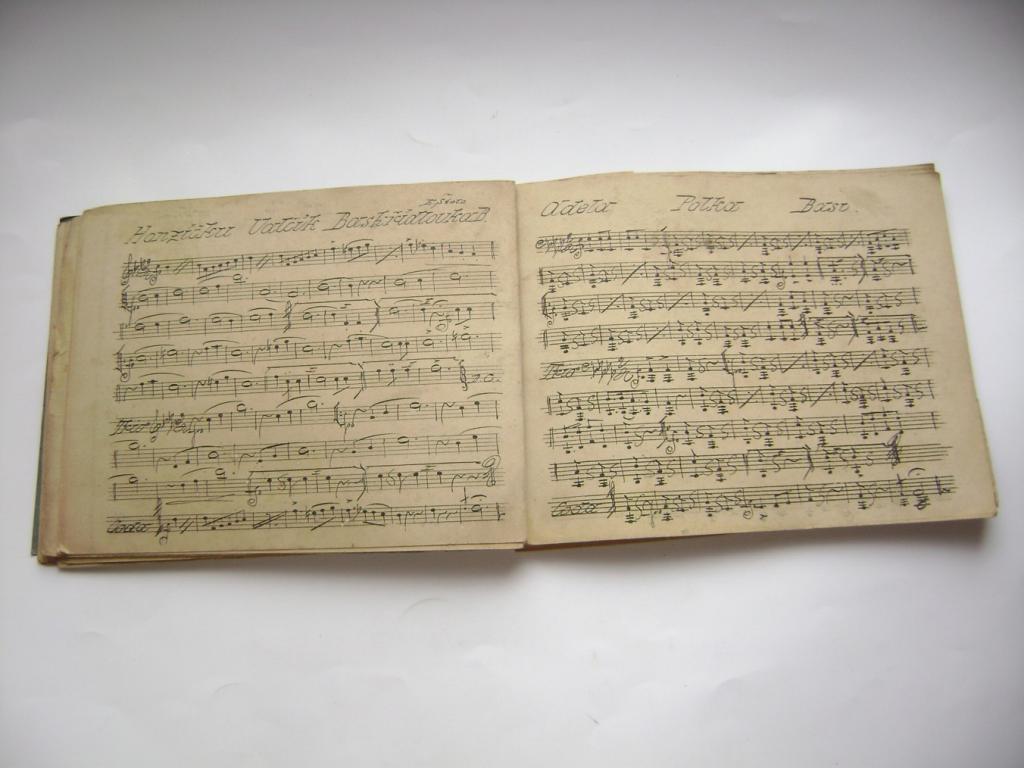 Hanzličku Valčik Baskřidlovka B.
Trio
Coda
Adela Polka Basi.
Trio
Coda